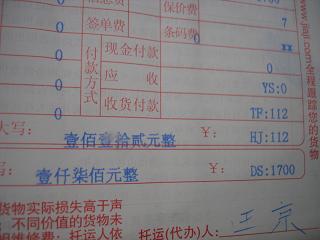 0 保价费
0 签单费 条码费 7
0 付款方式 现金付款 0 xx
0 应 收 0
0 收货付款 YS:0
TF:112
大写: 壹佰壹拾贰元整 ¥: HJ:112
写: 壹仟柒佰元整 ¥: DS:1700
货物实际损失高于声
，不同价值的货物未
托运人依 托运(代办)人:
www.jiaji.com全程跟踪您的货物